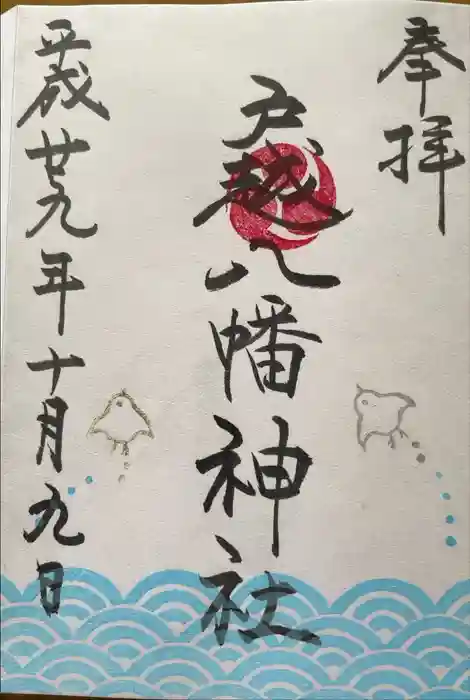 奉拝
戸越八幡神社
平成廿九年十月九日